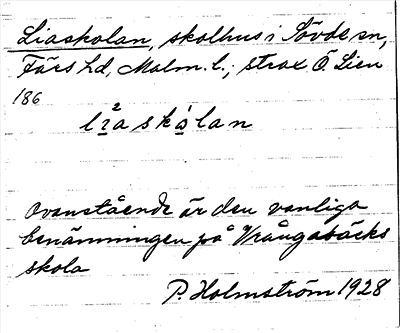 Liaskolan, skolhus i Sövde sn,
Färs hd, Malm. l.; strax Ö. Lien
186
li²a skålan
Ovanstående är den vanliga
benämningen på Vrångabäcks
skola
P. Holmström 1928